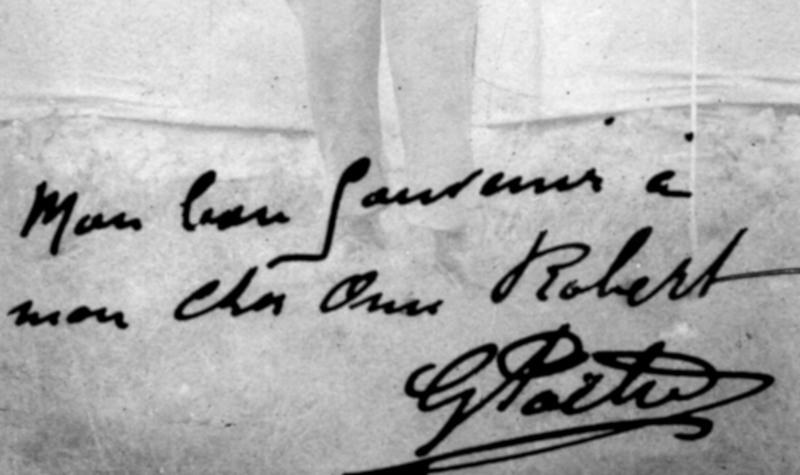 Mon bon Souvenir à
mon cher Ami Robert
G Poëtre